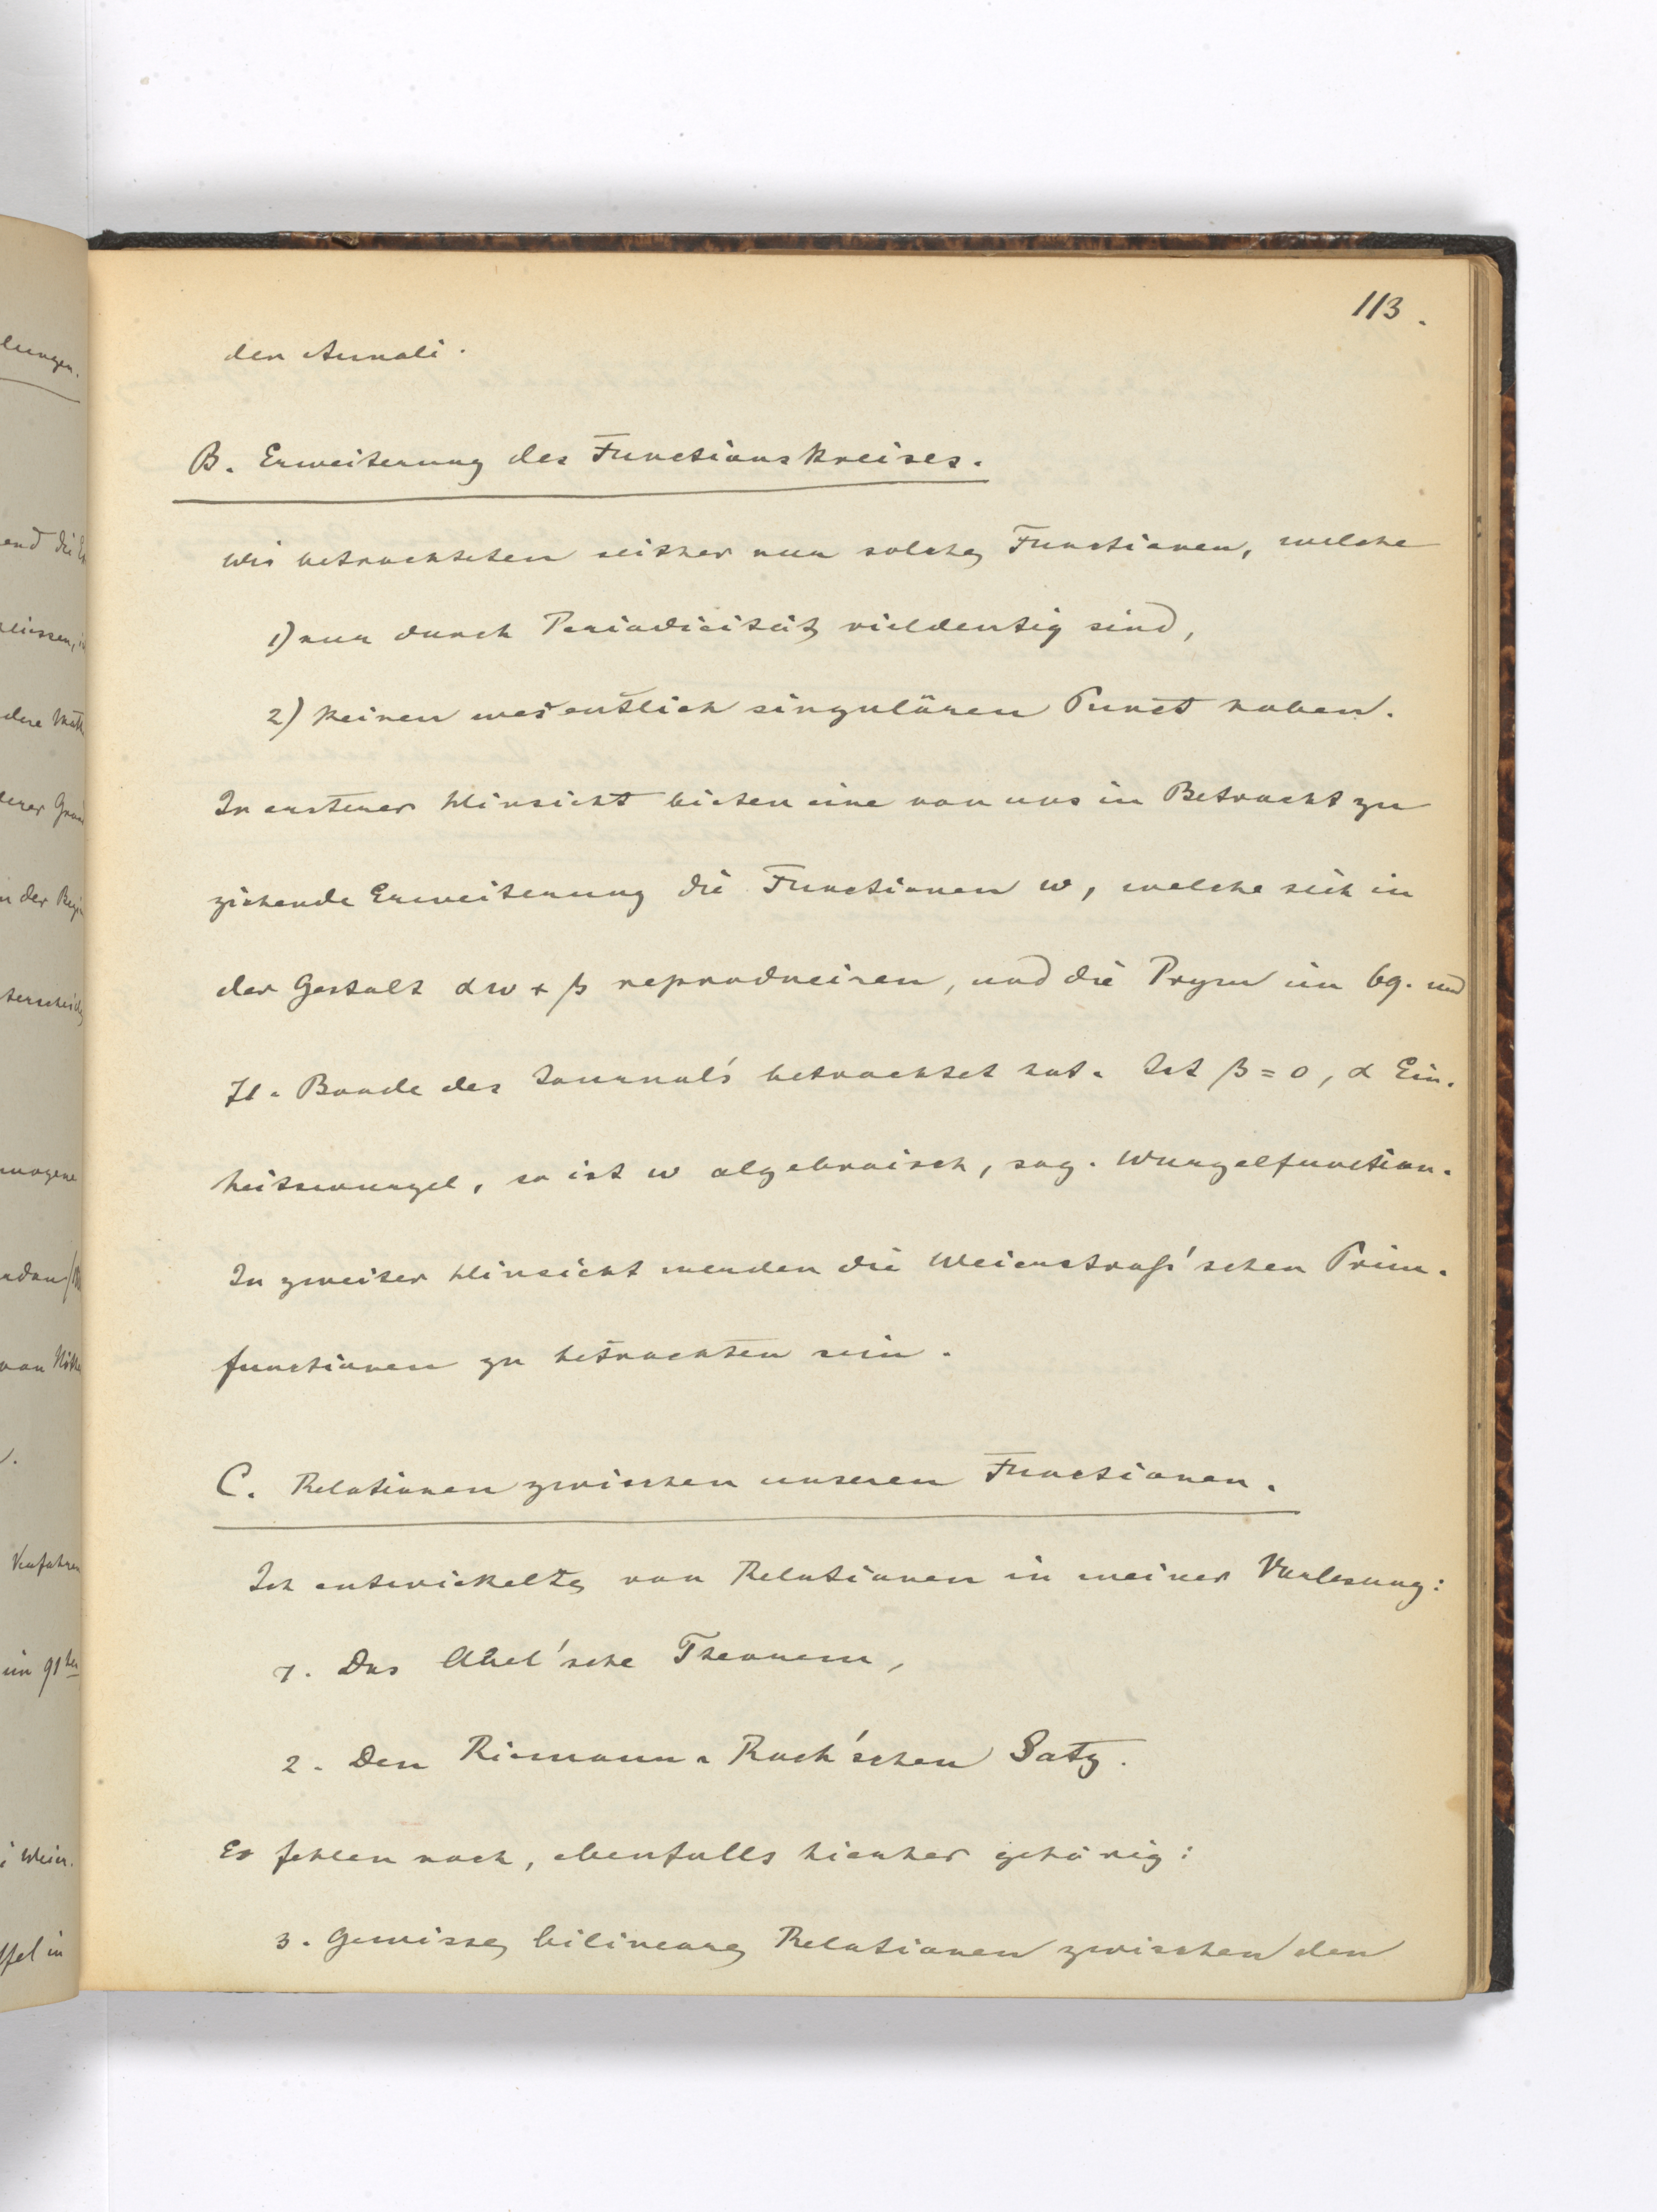 113.
den Annali.
B. Erweiterung des Functionskreises.
Wir betrachteten seither nur solche Functionen, welche
1) nur durch Periodicität vieldeutig sind,
2) keinen wesentlich singulären Punct haben.
In ersterer Hinsicht bieten eine von uns in Betracht zu
ziehende Erweiterung die Functionen w, welche sich in
der Gestalt αw + β reproduciren, und die Prym im 69. und
71. Bande des Journal's betrachtet hat. Ist β = 0, α Ein-
heitswurzel, so ist w algebraisch, sog. Wurzelfunction.
In zweiter Hinsicht werden die Weierstraß'schen Prim-
functionen zu betrachten sein.
C. Relationen zwischen unseren Functionen.
Ich entwickelte von Relationen in meiner Vorlesung:
1. Das Abel'sche Theorem,
2. Den Riemann-Roch'schen Satz.
Es fehlen noch, ebenfalls hierher gehörig:
3. Gewisse bilineare Relationen zwischen den